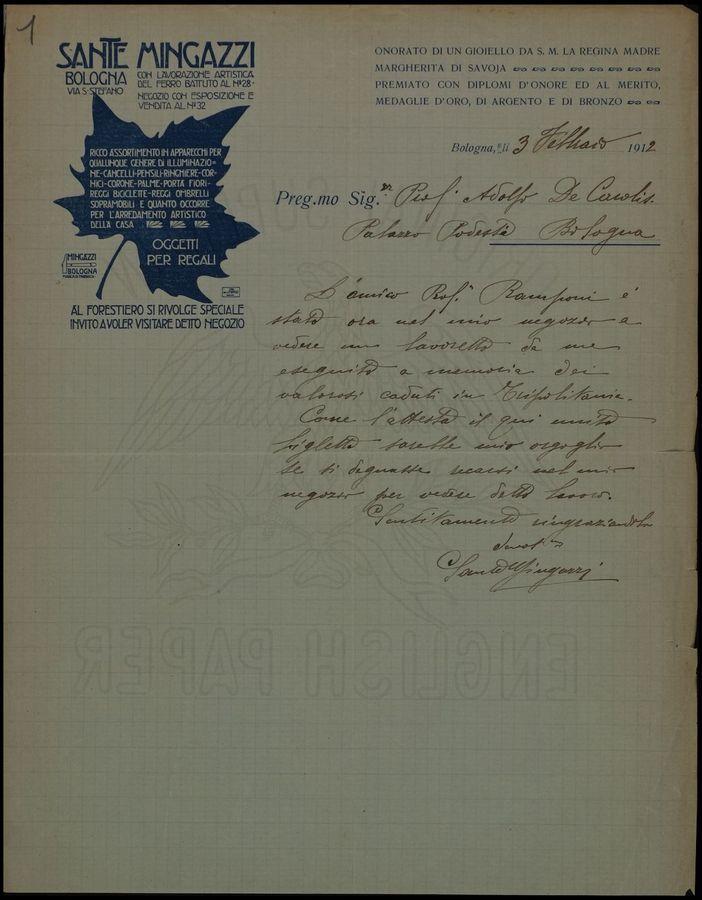 1
SANTE MINGAZZI
BOLOGNA
VIA S. STEFANO
CON LAVORAZIONE ARTISTICA
DEL FERRO BATTUTO AL N° 28 -
NEGOZIO CON ESPOSIZIONE E
VENDITA AL N° 32
RICCO ASSORTIMENTO IN APPARECCHI PER
QUALUNQUE GENERE DI ILLUMINAZIO=
NE-CANCELLI-PENSILI-RINGHIERE-COR-
NICI-CORONE-PALME-PORTA FIORI-
REGGI BICICLETTE-REGGI OMBRELLI
SOPRAMOBILI E QUANTO OCCORRE
PER L'ARREDAMENTO ARTISTICO
DELLA CASA
OGGETTI
PER REGALI
MINGAZZI
BOLOGNA
AL FORESTIERO SI RIVOLGE SPECIALE
INVITO A VOLER VISITARE DETTO NEGOZIO
ONORATO DI UN GIOIELLO DA S. M. LA REGINA MADRE
MARGHERITA DI SAVOJA
PREMIATO CON DIPLOMI D'ONORE ED AL MERITO,
MEDAGLIE D'ORO, DI ARGENTO E DI BRONZO
Bologna, li 3 Febbraio 1912
Preg.mo Sig.r Prof. Adolfo De Carolis.
Palazzo Podestà Bologna
L'amico Prof. Ramponi è
stato ora nel mio negozio a
vedere un lavoretto da me
eseguito a memoria dei
valorosi caduti in Tripolitania.
Come l'attesta il qui unito
biglietto sarebbe mio orgoglio
se si degnasse recarsi nel mio
negozio per vedere detto lavoro.
Sentitamente ringraziandola
devot.mo
Sante Mingazzi
ENGLISH PAPER